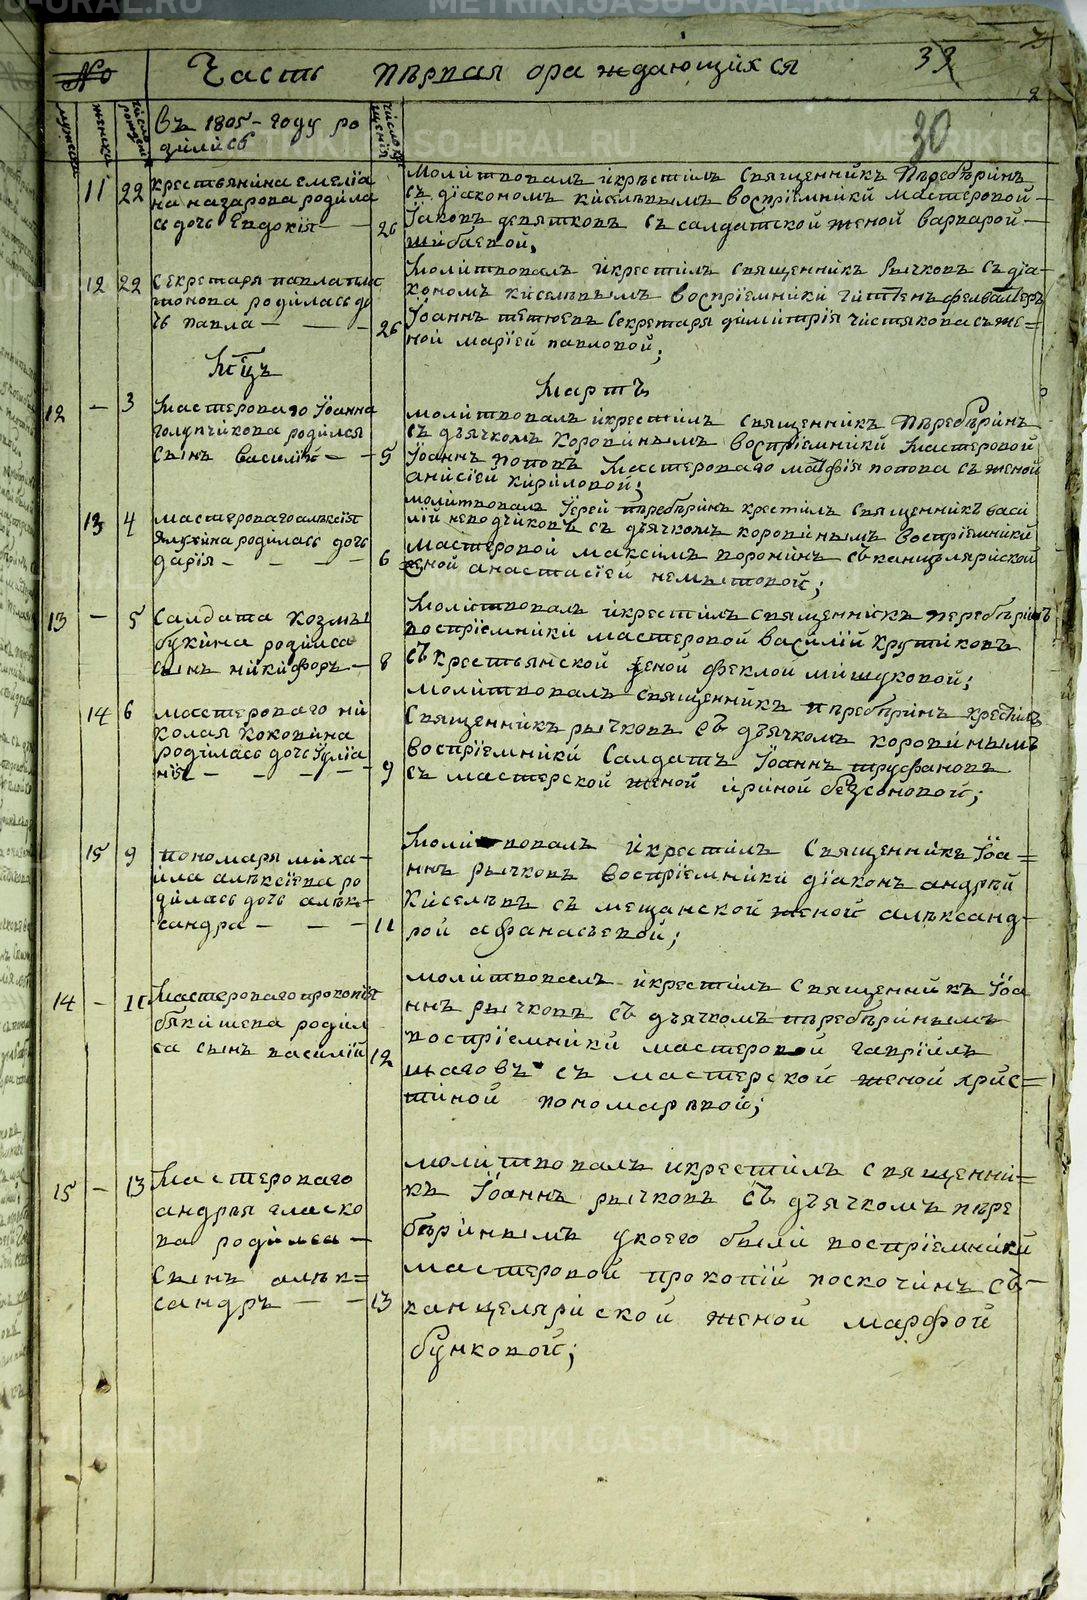 № Часть первая ораждающихся 33
2
мужеска женска число рождения Въ 1805-году ро число крещения 30
дились
11 22 крестьянина емелїа
на назарова родила
сь дочь Евдокїя — — 26
молитвовалъ икрестилъ священникъ Перебѣринъ
съ дїакономъ киселевымъ воспрїемники мастеровой —
Їаковъ девятковъ съ салдатской женой варварой —
шибаевой,
12 22 Секретаря павла
родилась до
чь павла — — — 26
Молитвовалъ икрестилъ священникъ Рычковъ съ дїа-
кономъ киселевымъ воспрїемники
Їоаннъ Секретаря димитрїя чистякова съ же=
ной марїей павловой;
Мцъ
Мартъ
12 — 3 Мастероваго Їоанна
голупчикова родился
сынъ василїй — — 5
молитвовалъ икрестилъ священникъ Перебѣринъ
съ дьячкомъ коровинымъ воспрїемники мастеровой
Їоаннъ поповъ Мастероваго матфїя попова съ женой
анисїей кириловой;
13 4 мастероваго алексїя
родилась дочь
дарїя — — — — 6
молитвовалъ Їерей перебѣринъ крестилъ священникъ васи
лїй неводчиковъ съ дьячкомъ коровинымъ воспрїемники
Мастеровой максимъ воронинъ съ канцелярйской
женой анастасїей
13 — 5 Салдата козмы
букина родилса
сынъ никифоръ — 8
Молитвовалъ икрестилъ священникъ перебѣринъ
воспрїемники мастеровой василїй крутиковъ
съ крестьянской женой феклой мишуковой;
14 6 мастероваго ни
колая коковина
родилась дочь Їулїа
нїя — — — — 9
молитвовалъ священникъ перебринъ крестилъ
Священникъ рычковъ съ дьячкомъ коровинымъ
воспрїемники Салдатъ Їоаннъ труфановъ
съ мастерской женой ириной безсоновой;
15 9 пономаря миха-
ила алексїева ро
дилась дочь алек-
сандра — — — 11
Молитвовалъ икрестилъ Священникъ Їоа=
ннъ рычковъ воспрїемники дїаконъ андрей
Киселевъ съ мещанской женой александ-
рой афанасьевой;
14 — 11 Мастероваго прокопїя
бякишева родил
са сынъ василїй 12
молитвовалъ икрестилъ священникъ Їоа
ннъ рычковъ съ дьячкомъ перебѣринымъ
воспрїемники мастеровой гаврїилъ
съ мастерской женой хрис=
тиной пономаревой;
15 — 13 Мастероваго
андрея гласко
ва родилса —
Сынъ алек=
сандръ — — 13
молитвовалъ икрестилъ священни=
къ Їоаннъ рычковъ съ дьячкомъ пере
бѣринымъ укоего были воспрїемники
мастеровой прокопїй поскочинъ съ —
канцелярйской женой марфой
бунковой;